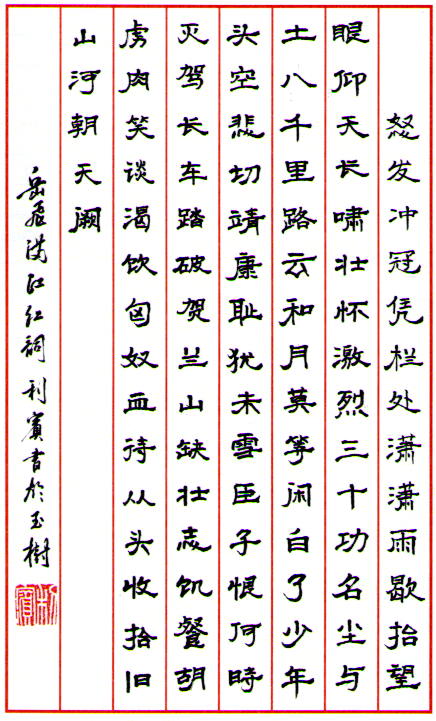 怒发冲冠凭栏处潇潇雨歇抬望
眼仰天长啸壮怀激烈三十功名尘与
土八千里路云和月莫等闲白了少年
头空悲切靖康耻犹未雪臣子恨何時
灭驾长车踏破贺兰山缺壮志饥餐胡
虏肉笑谈渴饮匈奴血待从头收拾旧
山河朝天阙
岳飛满江红詞利賓書於玉樹